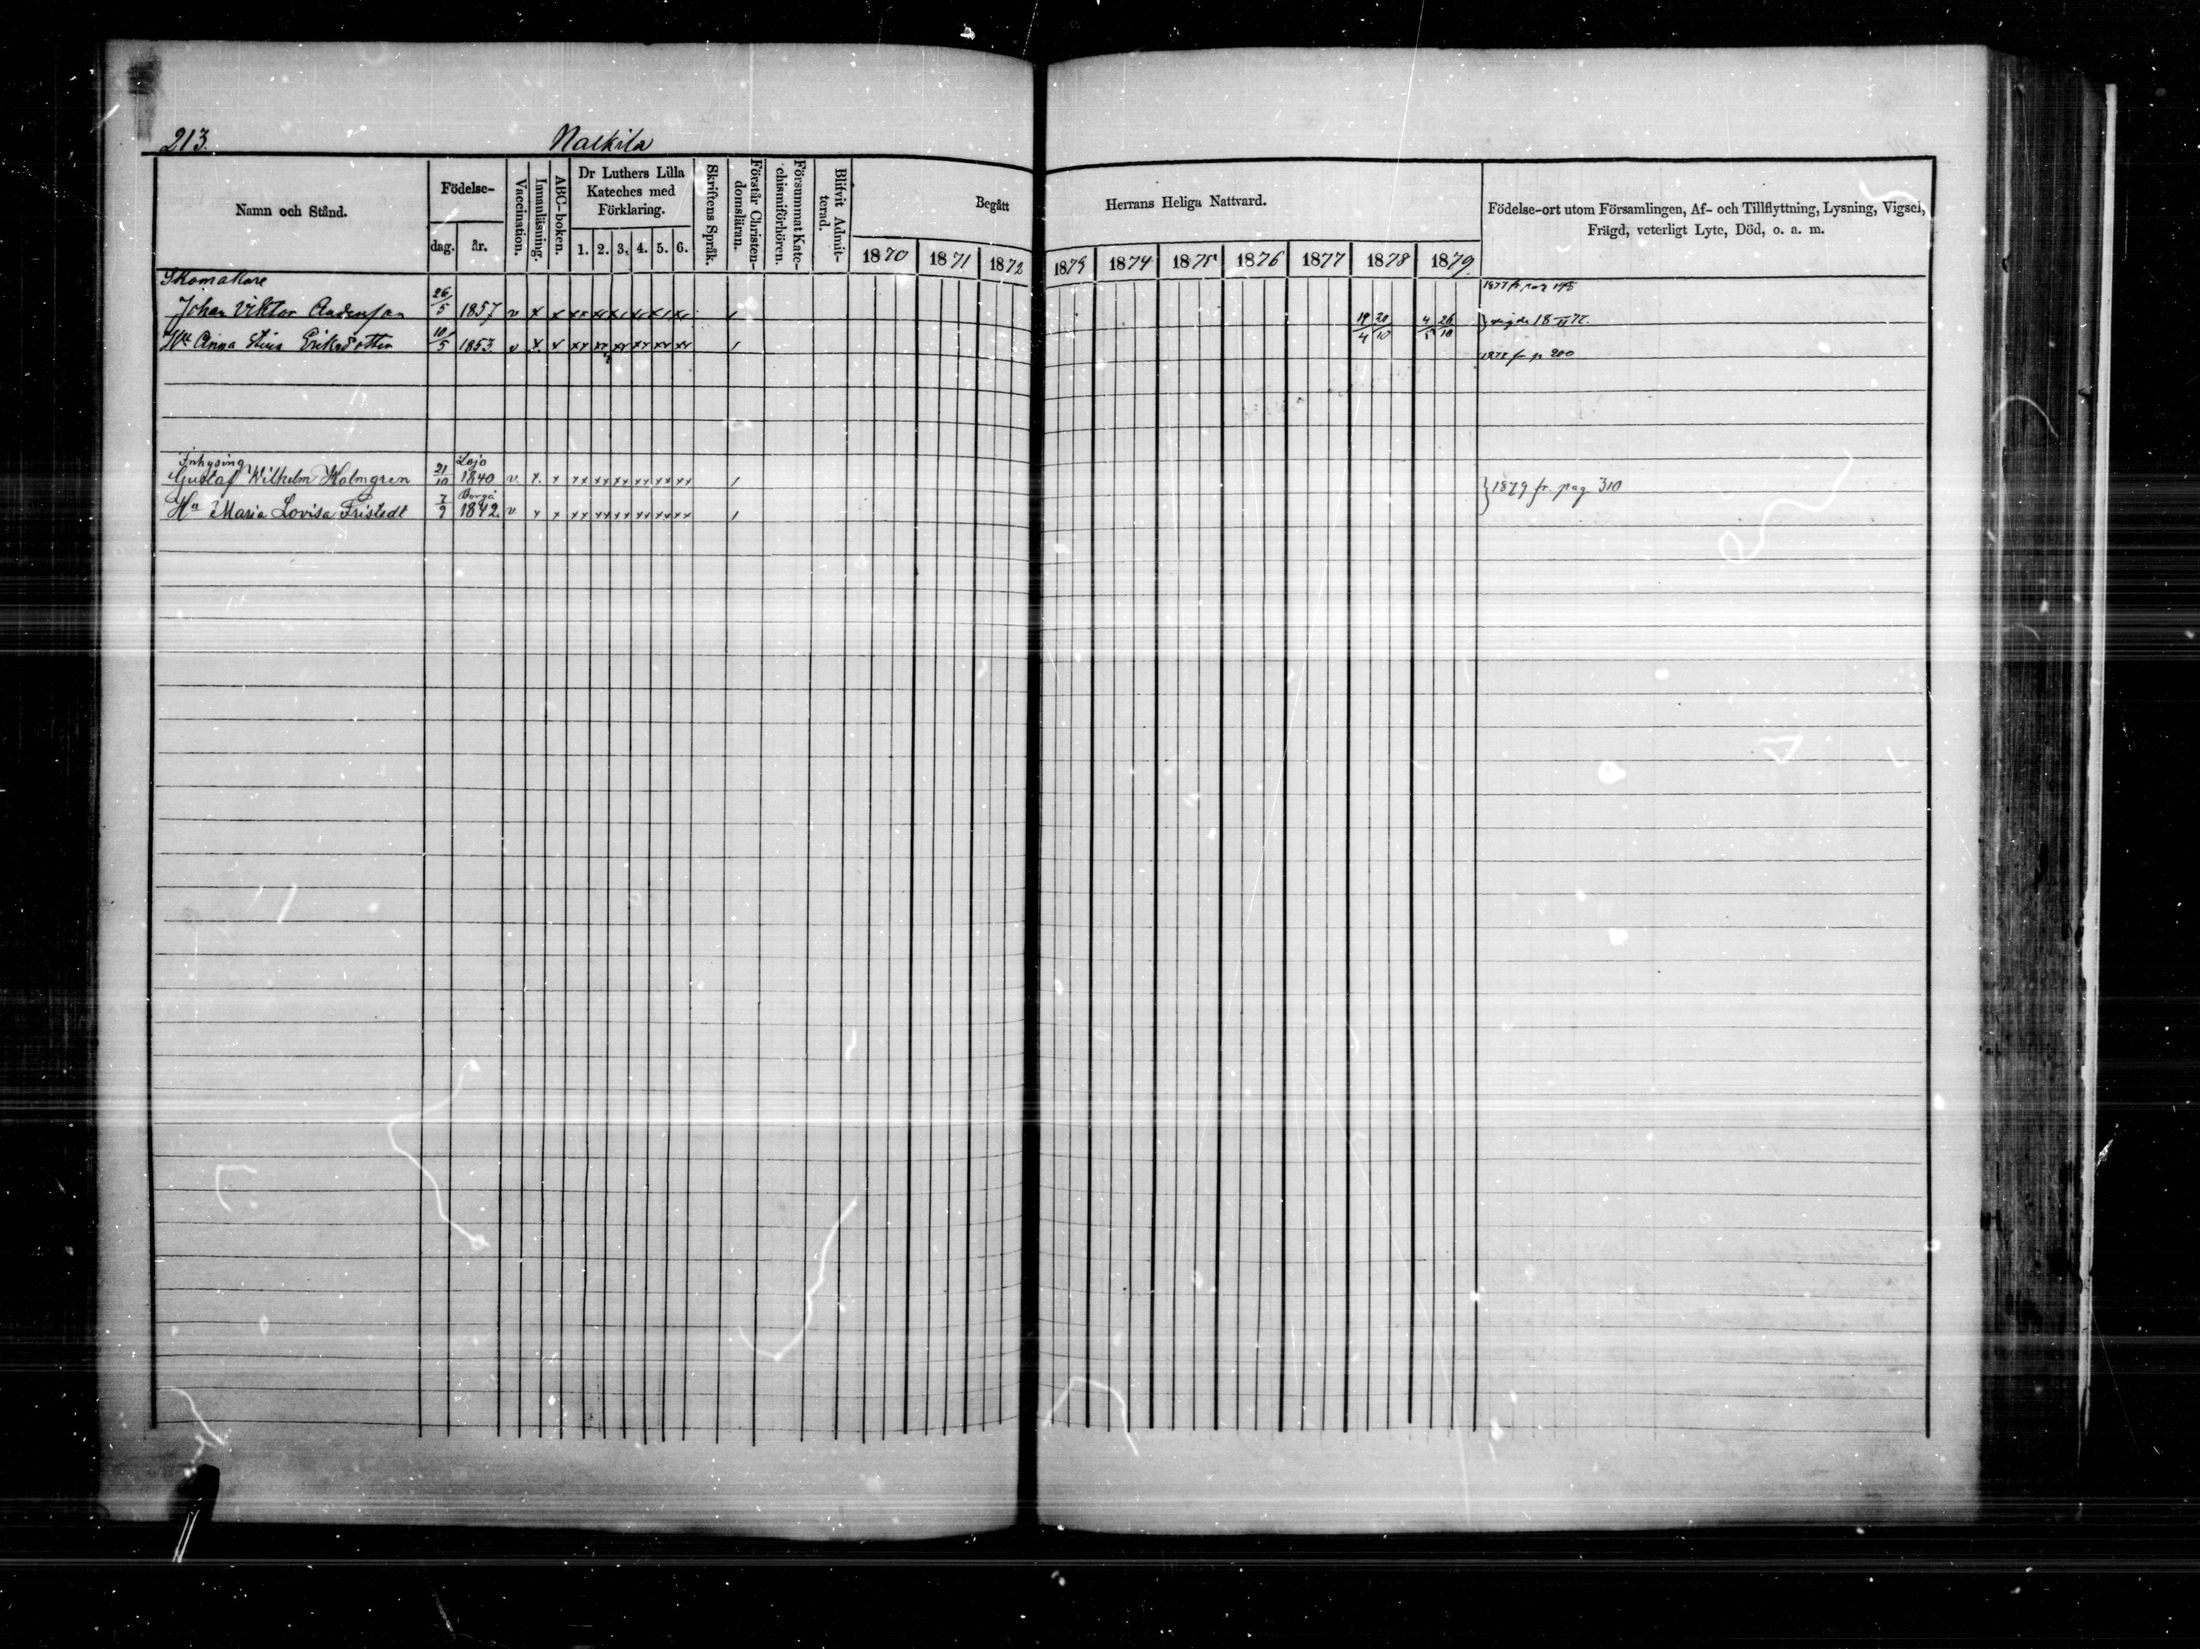 213.
Nalkila
Namn och Stånd.
Födelse-
dag.
år.
Vaccination.
Innanläsning.
ABC-boken.
Dr Luthers Lilla
Kateches med
Förklaring.
1. 2. 3. 4. 5. 6.
Skriftens Språk.
Förstår Christen-
domsläran.
Försummat Kate-
chismiförhören.
Blifvit Admit-
terad.
Begått
Herrans Heliga Nattvard.
1870 1871 1872 1873 1874 1875 1876 1877 1878 1879.
Födelse-ort utom Församlingen, Af- och Tillflyttning, Lysning, Vigsel,
Frägd, veterligt Lyte, Död, o. a. m.
Skomakare
Johan Viktor Andersson 26/5 1857 v x x xx xx xx xx xx xx / 19/4 20/10 4/5 26/10
Hu Anna Stina Eriksdotter 10/5 1853. v x. x xx xx xx xx xx xx /
1878 fr p 200
Inhysing Lojo
Gustaf Wilhelm Holmgren 21/10 1840 v. x. x xx xx xx xx xx xx / } 1879 fr. pag 310
Borgå
Ha Maria Lovisa Fristedt 7/9 1842. v x x xx xx xx xx xx xx /